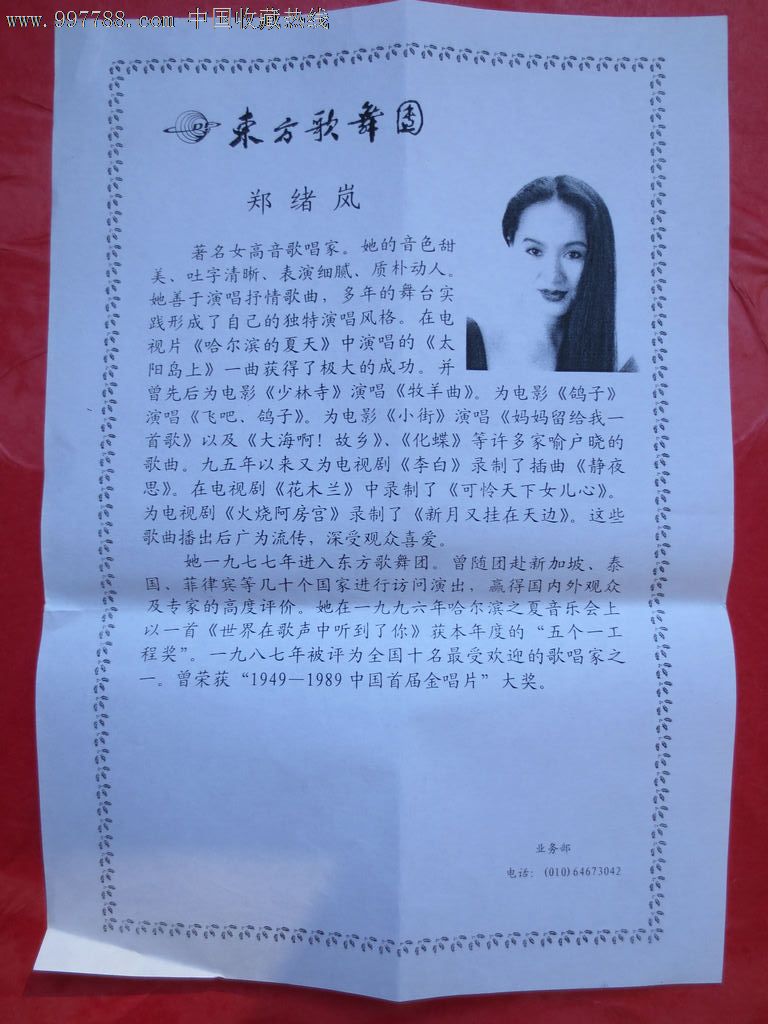 www.997788.com 中国收藏热线
東方歌舞团
郑绪岚
著名女高音歌唱家。她的音色甜
美、吐字清晰、表演细腻、质朴动人。
她善于演唱抒情歌曲，多年的舞台实
践形成了自己的独特演唱风格。在电
视片《哈尔滨的夏天》中演唱的《太
阳岛上》一曲获得了极大的成功。并
曾先后为电影《少林寺》演唱《牧羊曲》。为电影《鸽子》
演唱《飞吧、鸽子》。为电影《小街》演唱《妈妈留给我一
首歌》以及《大海啊！故乡》、《化蝶》等许多家喻户晓的
歌曲。九五年以来又为电视剧《李白》录制了插曲《静夜
思》。在电视剧《花木兰》中录制了《可怜天下女儿心》。
为电视剧《火烧阿房宫》录制了《新月又挂在天边》。这些
歌曲播出后广为流传，深受观众喜爱。
她一九七七年进入东方歌舞团。曾随团赴新加坡、泰
国、菲律宾等几十个国家进行访问演出，赢得国内外观众
及专家的高度评价。她在一九九六年哈尔滨之夏音乐会上
以一首《世界在歌声中听到了你》获本年度的“五个一工
程奖”。一九八七年被评为全国十名最受欢迎的歌唱家之
一。曾荣获“1949—1989中国首届金唱片”大奖。
业务部
电话：(010)64673042